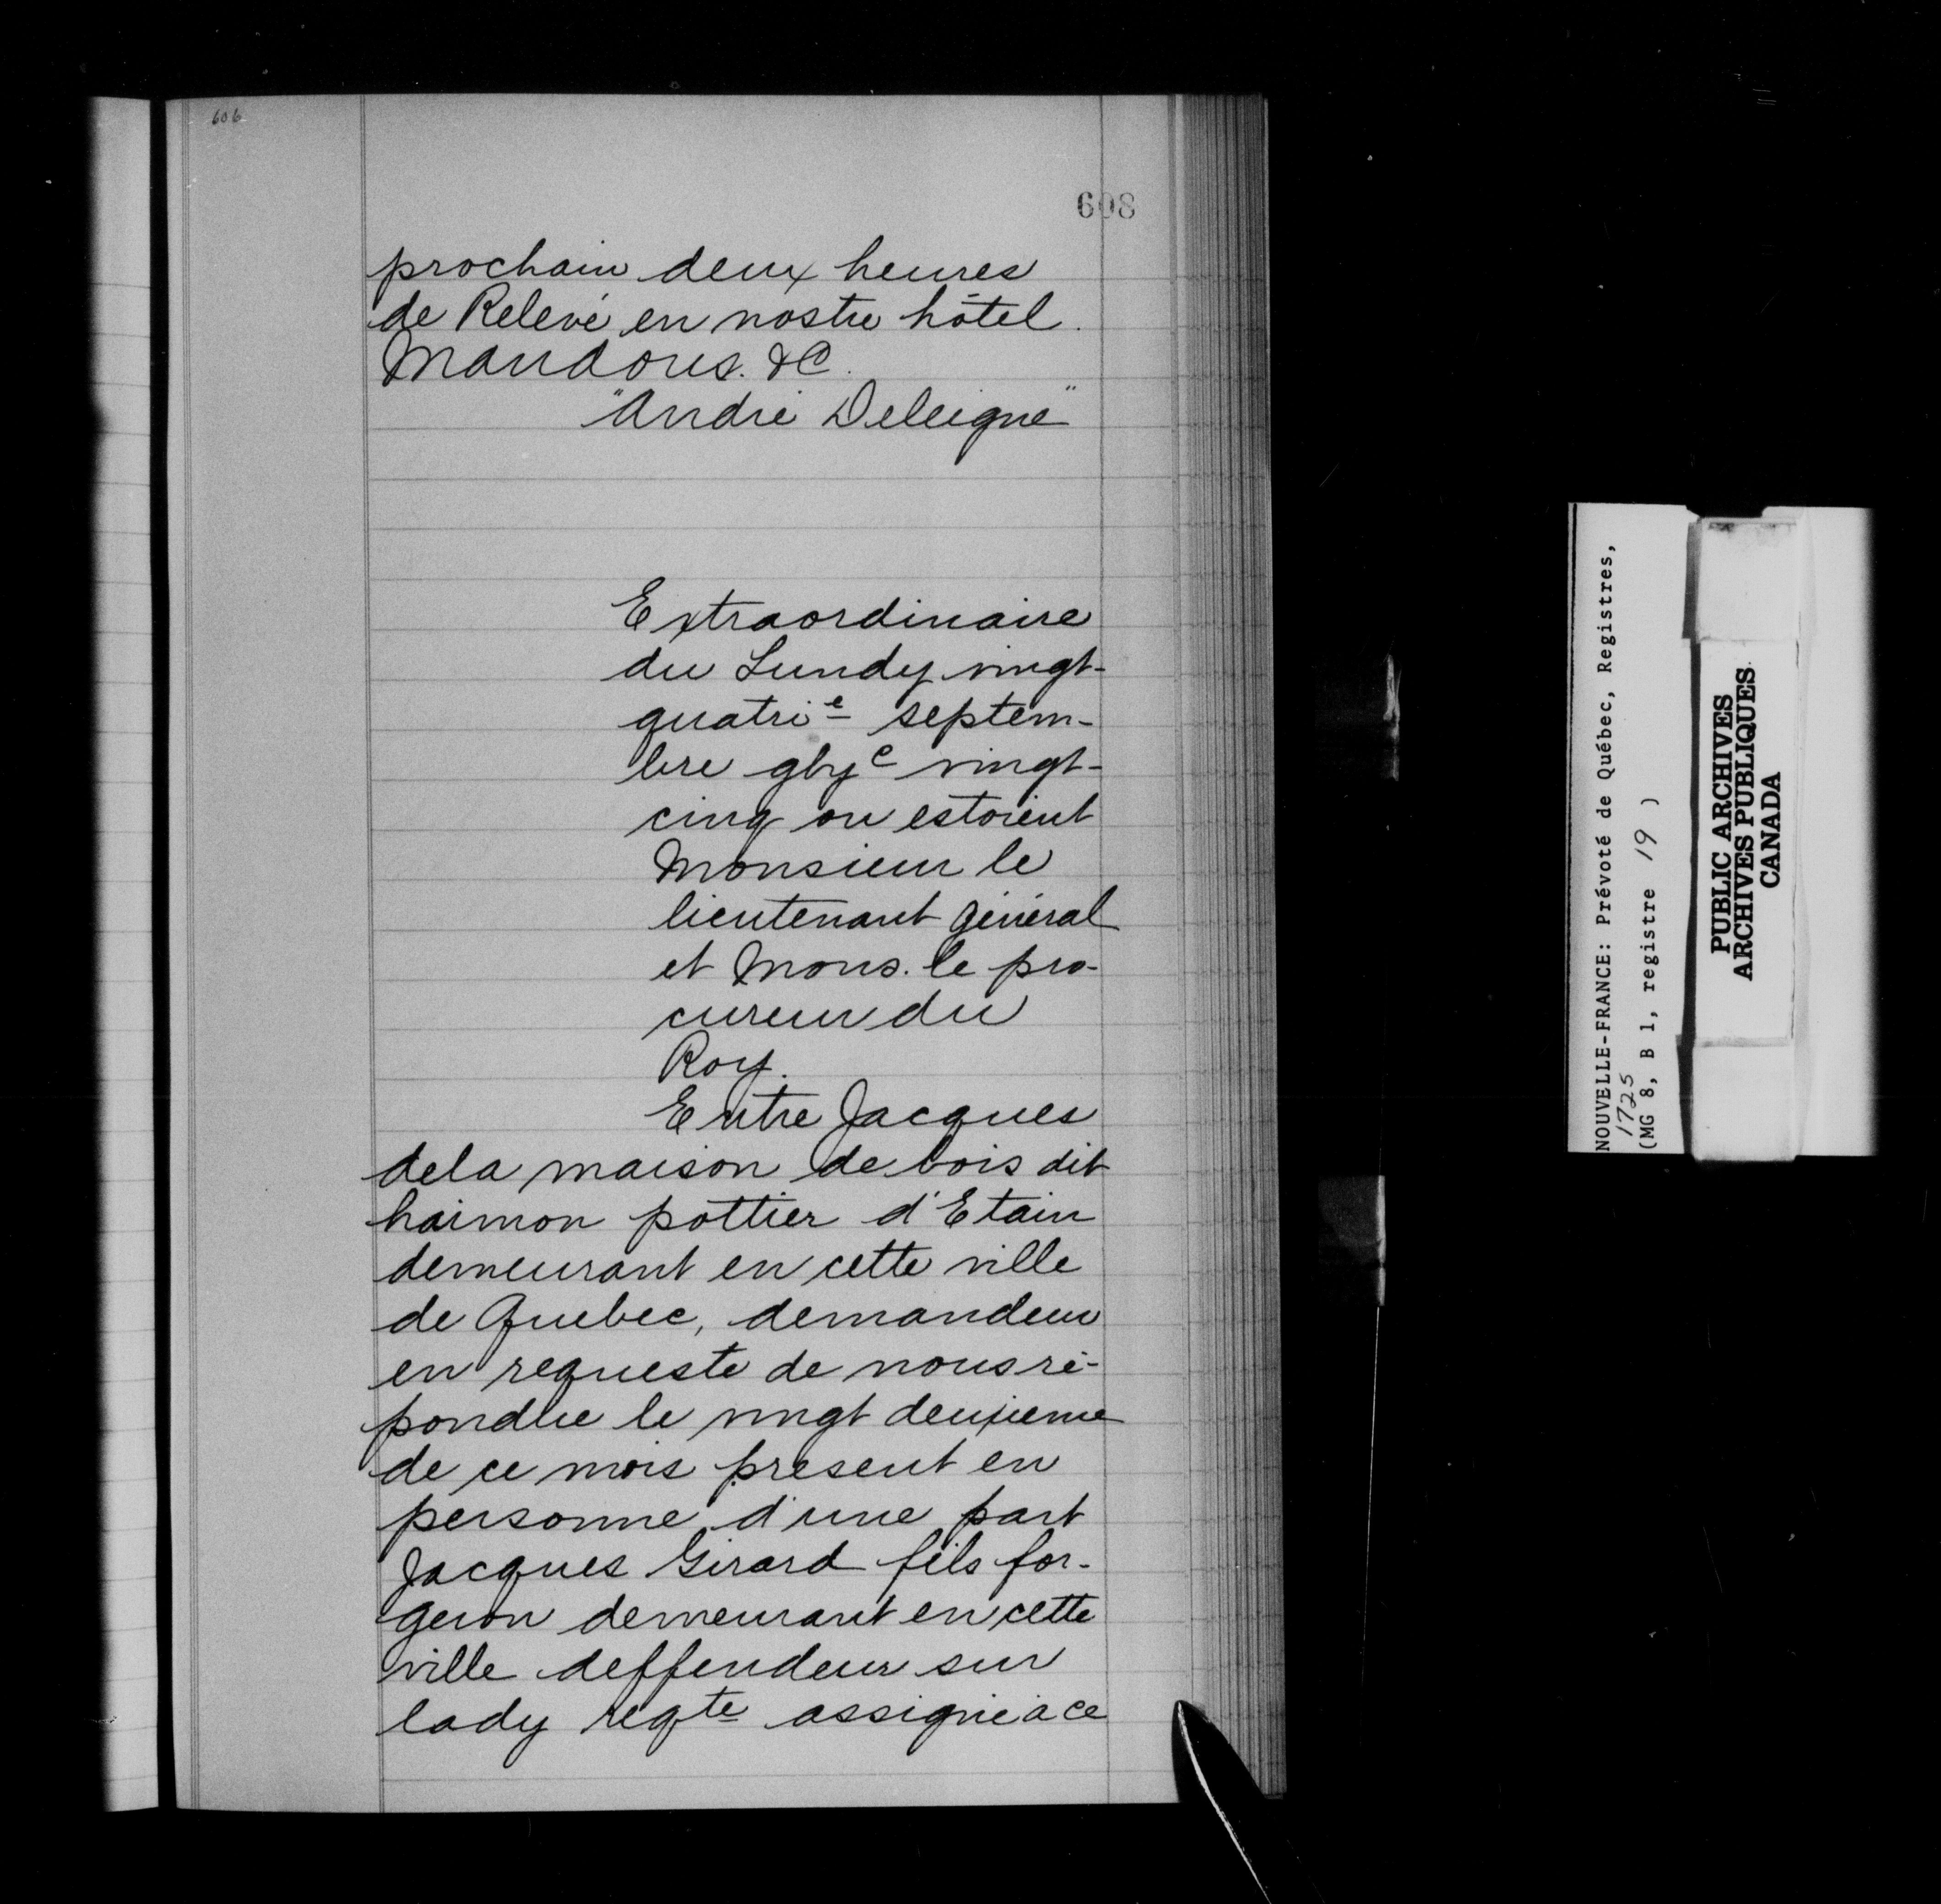 606
608
prochain deux heures
de Relevé en nostre hôtel.
Mandons. &C.
"André Deleigne"
Extraordinaire
du Lundy vingt-
quatrie septem-
bre gbyc vingt-
cinq ou estoient
Monsieur le
lieutenant général
et Mons. le pro-
cureur du
Roy.
Entre Jacques
dela maison de bois dit
haimon pottier d'Etain
demeurant en cette ville
de Quebec, demandeur
en requeste de nous ré-
pondue le vingt deuxieme
de ce mois présent en
personne d'une part
Jacques Girard fils for-
geron demeurant en cette
ville deffendeur sur
lady reqte assigné à ce
NOUVELLE-FRANCE: Prévoté de Québec, Registres,
1725
(MG 8, B 1, registre 19 )
PUBLIC ARCHIVES
ARCHIVES PUBLIQUES
CANADA